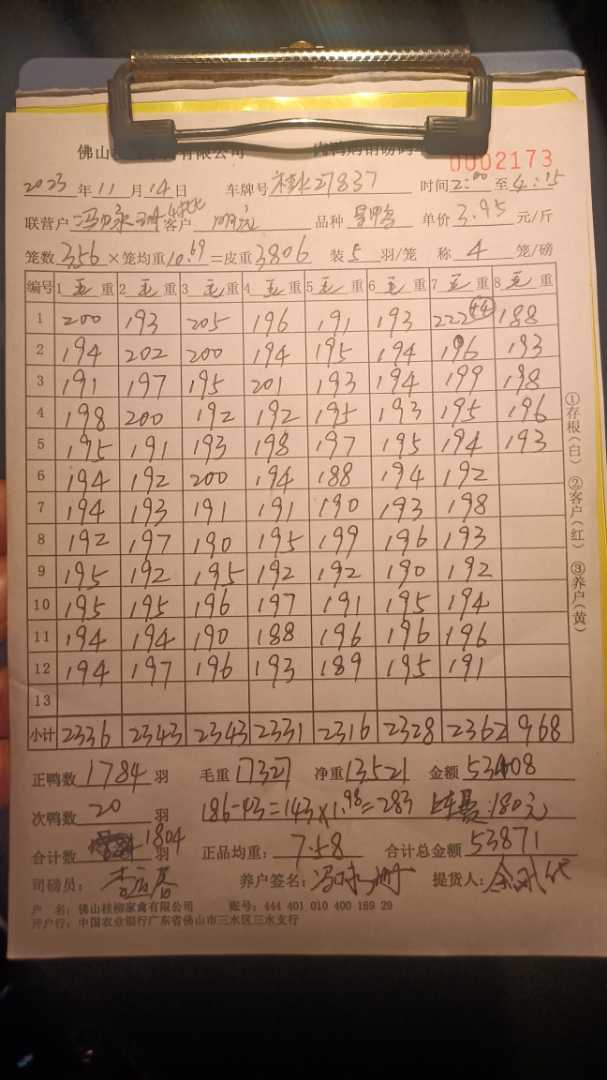 佛山 有限公司
0002173
2023年11月14日 车牌号 27837 时间2:00至4:15
联营户 客户 品种 单价3.95元/斤
笼数356×笼均重10.69=皮重3806 装5羽/笼 称4笼/磅
编号 1毛重 2毛重 3毛重 4毛重 5毛重 6毛重 7毛重 8毛重
1 200 193 205 196 191 193 222 44 188
2 194 202 200 194 195 194 196 193
3 191 197 195 201 193 194 199 198
4 198 200 192 192 195 193 195 196
5 195 191 193 198 197 195 194 193
6 194 192 200 194 188 194 192
7 194 193 191 191 190 193 198
8 192 197 190 195 199 196 193
9 195 192 195 192 192 190 192
10 195 195 196 197 191 195 194
11 194 194 190 188 196 196 196
12 194 197 196 193 189 195 191
13
小计 2336 2343 2343 2331 2316 2328 2362 968
正鸭数1784羽 毛重17327 净重13521 金额53408
次鸭数20羽 186-43=143×1.98=283 180元
合计数1804羽 正品均重：7.58 合计总金额53871
司磅员： 养户签名： 提货人：
户 名：佛山桂柳家禽有限公司 账号：444 401 010 400 169 29
开户行：中国农业银行广东省佛山市三水区三水支行
①存根（白） ②客户（红） ③养户（黄）